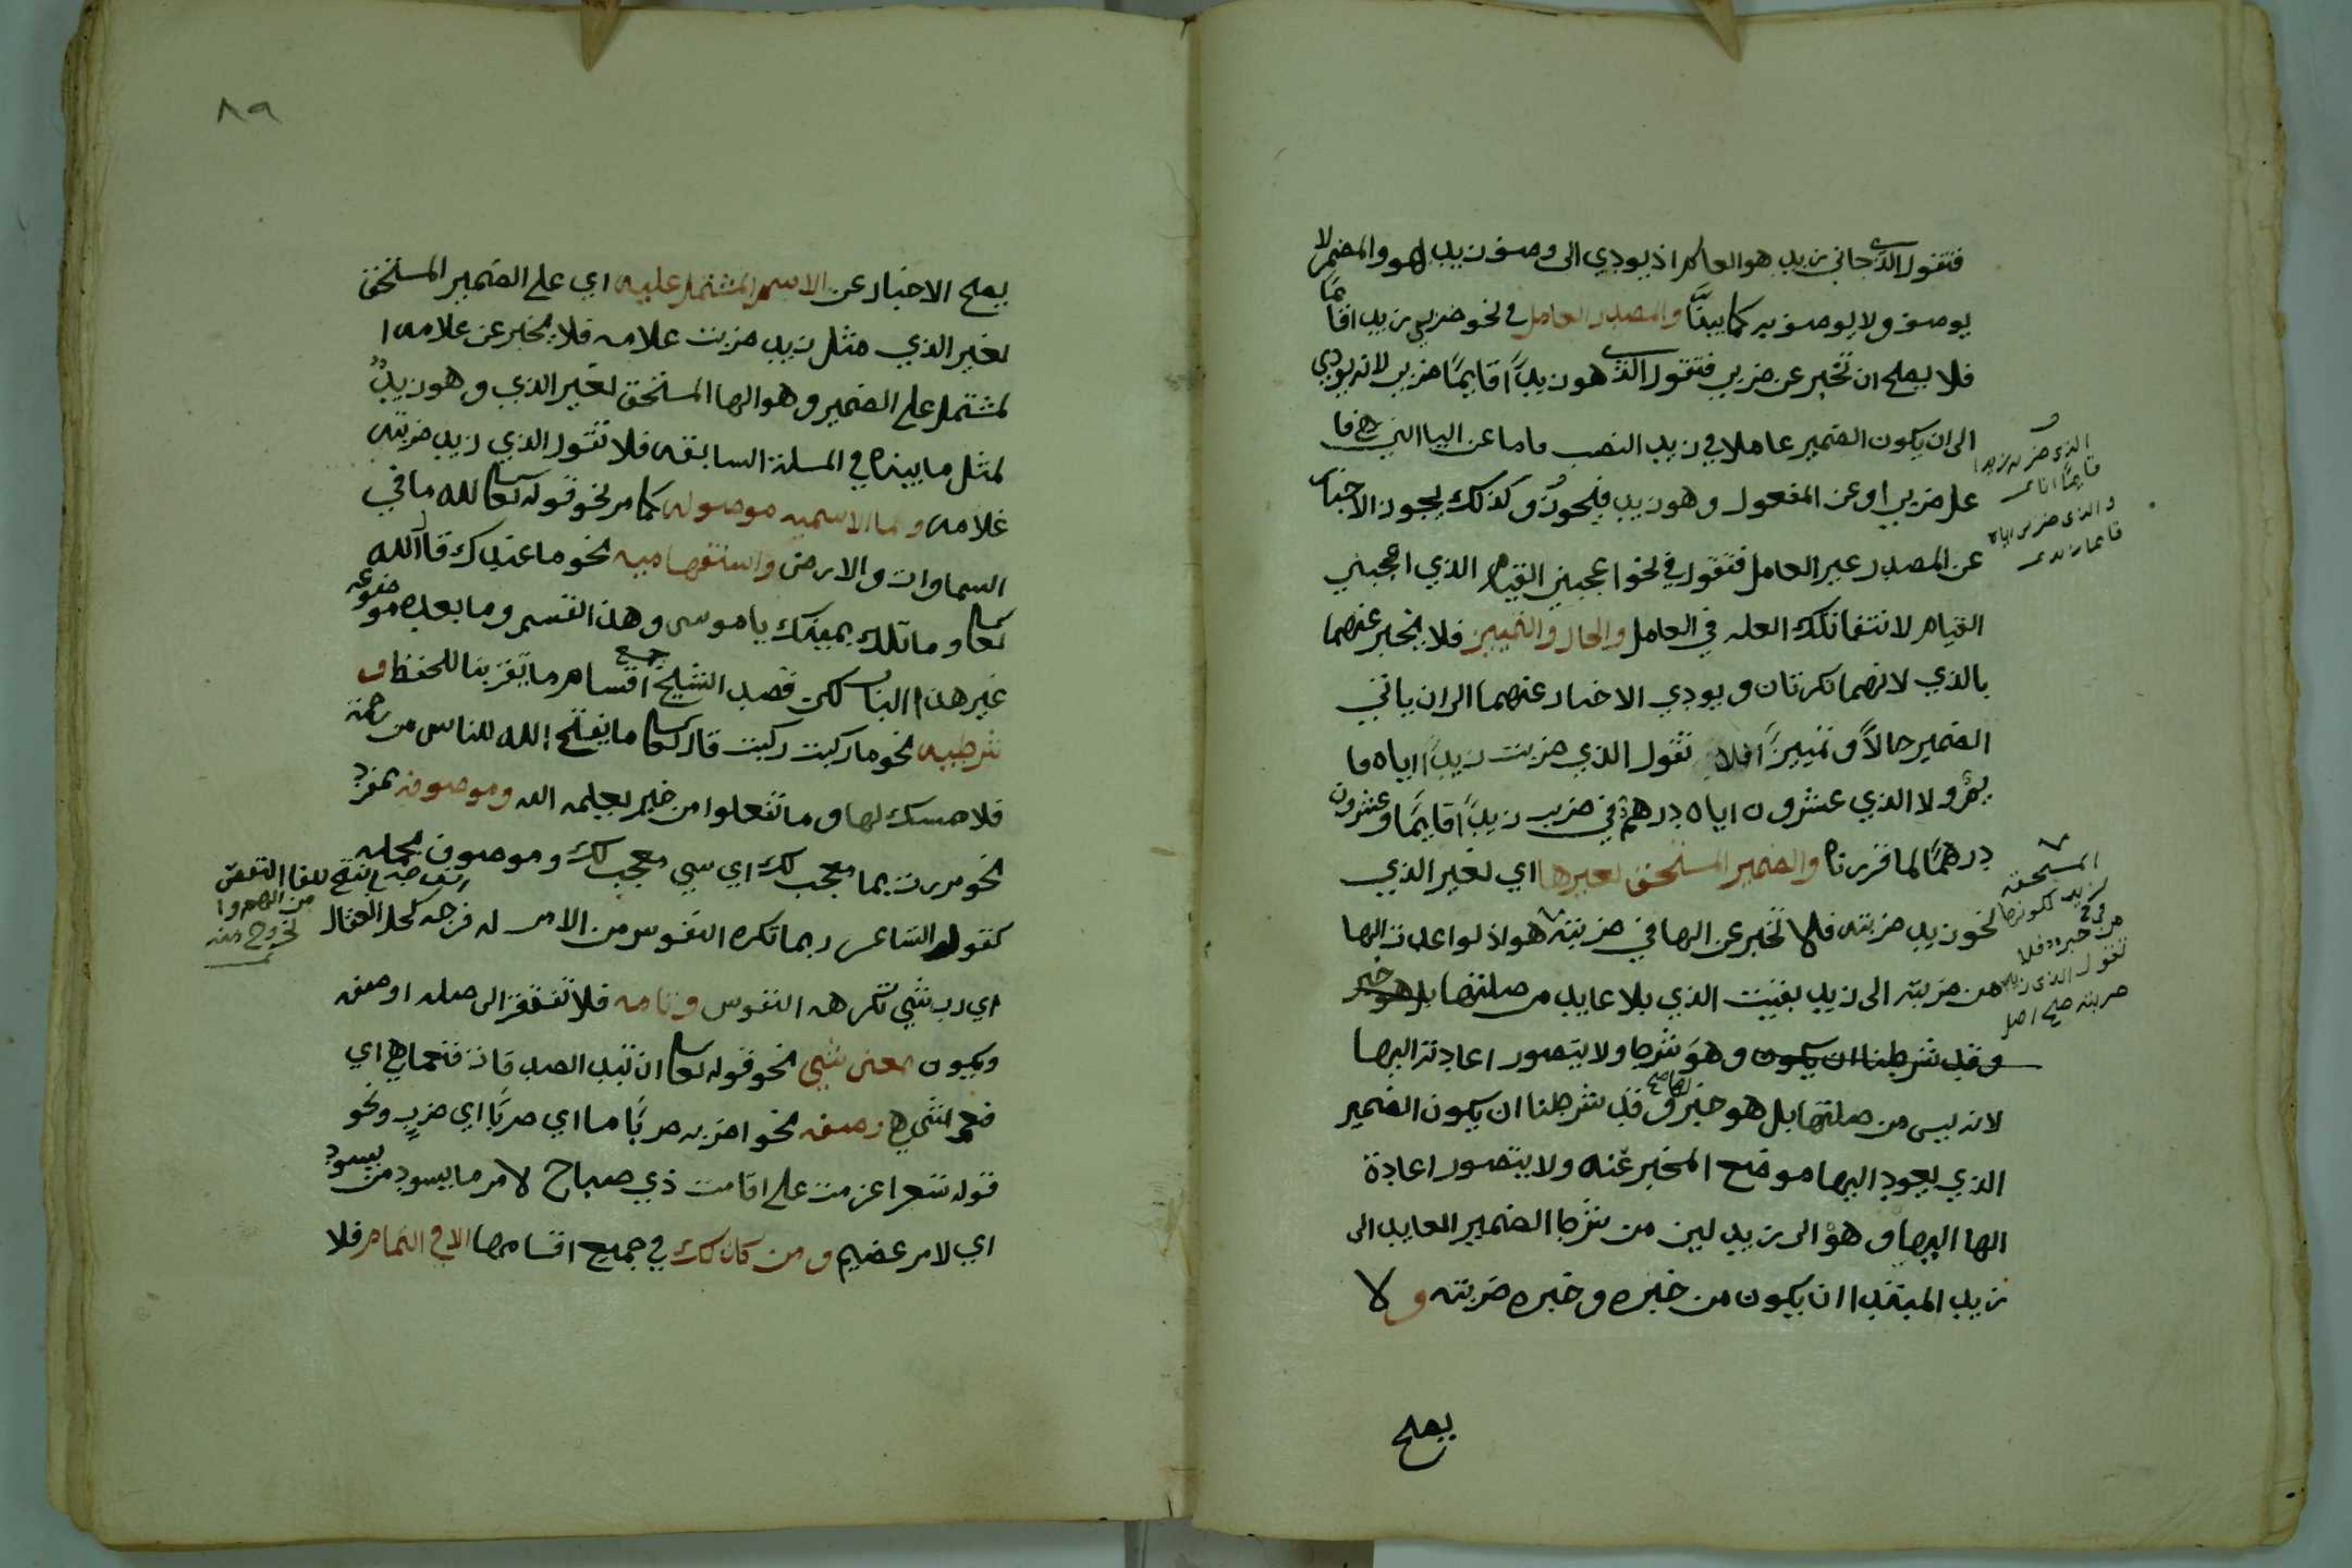 فتقول الذي جاني زيد هو العالم اذ يودي الى وصف زيد بهو والمضمر لا
يوصف ولا يوصف به كما بينا والمصدر العامل في نحو ضربي زيدا قائما
فلا يصلح ان تخبر عن ضربي فتقول الذي هو زيدًا قايمًا ضربي لانه يودي
الى ان يكون الضمير عاملا في زيد النصب واما عن اليا التي هي فا
على ضربي او عن المفعول وهو زيد فيجوز وكذلك يجوز الاخبار
عن المصدر غير العامل فتقول في نحو اعجبني القيام الذي اعجبني
القيام لانتفا تلك العله في العامل والحال والتمييز فلا يخبر عنهما
بالذي لانهما نكرتان و يودي الاخبار عنهما الى ان ياتي
الضمير حالاً وتمييزًا فلا تقول الذي ضربت زيدًا اياه قا
يم ولا الذي عشرون اياه درهم في ضرب زيدًا قايمًا وعشرون
درهمًا لما قررناه والضمير المستحق لغيرها اي لغير الذي
نحو زيد ضربته فلا تخبر عن الها في ضربته هو اذ لو اعدت الها
من ضربته الى زيد بقيت الذي بلا عايد من صلتها بل هو خبر
وقد شرطنا ان يكون وهو شرط ولا يتصور اعادته اليها
لانه ليس من صلتها بل هو خبر لها صح وقد شرطنا ان يكون الضمير
الذي يعود اليها موضع المخبر عنه ولا يتصور اعادة
الها اليها وهو الى زيد لين من شرط الضمير العايد الى
زيد المبتدا ان يكون من خبره وخبره ضربته ولا
يصلح
الذي ضربه زيدا
قايمًا انا
والذي ضربي اياه
قايما زيد
المستحقه
لزيد لكونها
في
من خبره فلا
تقول الذي زيد
ضربته هو صح اصل
٨٩
يصلح الاخبار عن الاسم المشتمل عليه اي على الضمير المستحق
لغير الذي مثل زيد ضربت غلامه فلا يخبر عن غلامه ا
لمشتمل على الضمير وهو الها المستحق لغير الذي وهو زيدٌ
لمثل ما بيناه في المسلة السابقه فلا تقول الذي زيد ضربته
غلامه وما الاسميه موصوله كما مر نحو قوله تعالى لله ما في
السماوات والارض واستفهاميه نحو ما عندك قال الله
تعالى وما تلك بيمينك يا موسى وهذا القسم وما بعده موضوعه
غير هذا الباب لكن قصد الشيخ جمع اقسام ما تقريبا للحفظ و
شرطيه نحو ما ركبت ركبت قال تعالى ما يفتح الله للناس من رحمة
فلا ممسك لها وما تفعلوا من خير يعلمه الله وموصوفه بمفرد
نحو مررت بما معجب لك اي شي معجب لك وموصوف بجمله
كقول الشاعر ربما تكره النفوس من الامر له فرجه كحل العقال
اي رب شي تكرهه النفوس وتامه فلا تفتقر الى صله او صفه
ويكون معنى شي نحو قوله تعالى ان تبدوا الصدقات فنعما هي اي
فنعم شي هي وصفه نحو اضربه ضربًا ما اي ضربًا اي ضربٍ ونحو
قوله شعرا عزمت على اقامت ذي صباح لامر ما يسود من يسود
اي لامر عظيم ومن كذلك في جميع اقسامها الا في التمام فلا